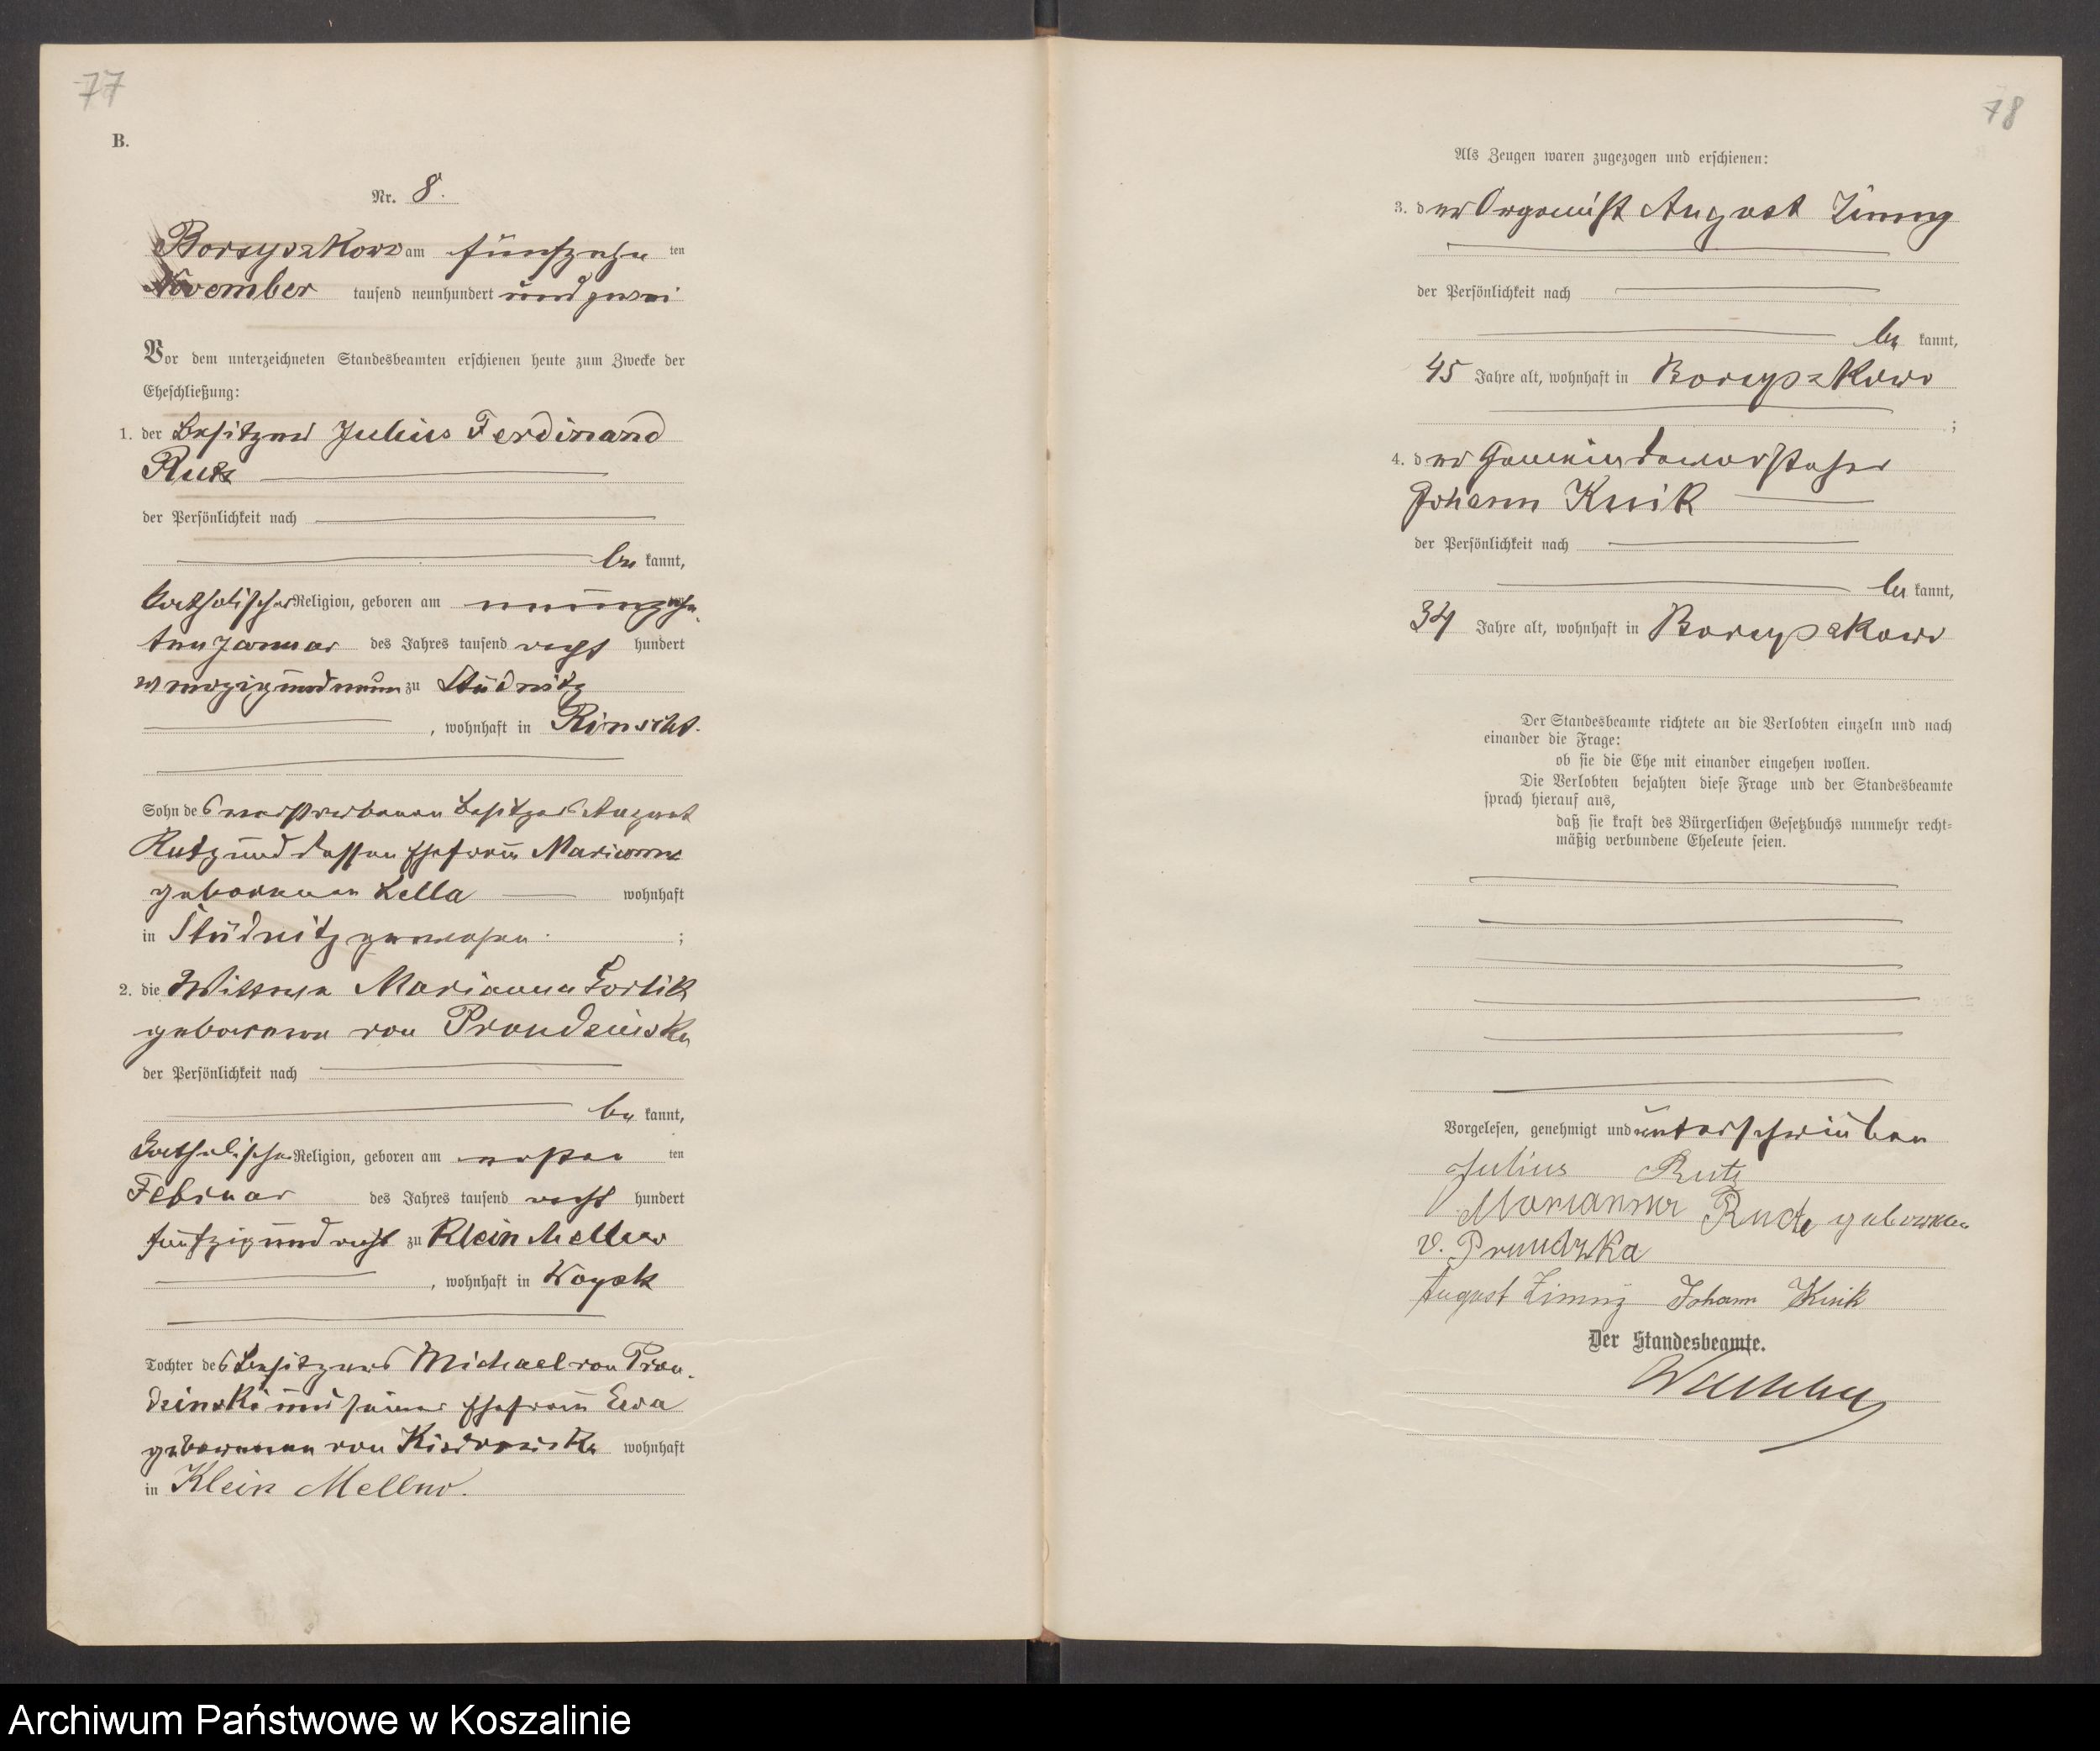 77
B.
Nr. 8.
Borzyszkowo am fünfzehn ten
November tausend neunhundert und zwei
Vor dem unterzeichneten Standesbeamten erschienen heute zum Zwecke der
Eheschließung:
1. der Besitzer Julius Ferdinand
Rutz
der Persönlichkeit nach
be kannt,
katholischer Religion, geboren am neunzehn
ten Januar des Jahres tausend acht hundert
vierzig und neun zu Stüdnitz
, wohnhaft in
Sohn des verstorbenen Besitzers August
Rutz und dessen Ehefrau Marianna
geborenen Lella wohnhaft
in Stüdnitz gewesen ;
2. die Wittwe Marianna Gorlik
geborene von Prondzinska
der Persönlichkeit nach
be kannt,
katholischer Religion, geboren am ersten ten
Februar des Jahres tausend acht hundert
fünfzig und acht zu Klein Mellno
, wohnhaft in Woysk
Tochter des Besitzers Michael von Pron-
dzinski und seiner Ehefrau Eva
geborenen von wohnhaft
in Klein Mellno.
78
Als Zeugen waren zugezogen und erschienen:
3. der Organist August Zimny
der Persönlichkeit nach
be kannt,
45 Jahre alt, wohnhaft in Borzyszkowo
;
4. der Gemeindevorsteher
Johann Knik
der Persönlichkeit nach
be kannt,
34 Jahre alt, wohnhaft in Borzyszkowo
Der Standesbeamte richtete an die Verlobten einzeln und nach
einander die Frage:
ob sie die Ehe mit einander eingehen wollen.
Die Verlobten bejahten diese Frage und der Standesbeamte
sprach hierauf aus,
daß sie kraft des Bürgerlichen Gesetzbuchs nunmehr recht-
mäßig verbundene Eheleute seien.
Vorgelesen, genehmigt und unterschrieben
Julius Rutz
Marianna geborene
v.
August Zimny Johann Knik
Der Standesbeamte.
Archiwum Państwowe w Koszalinie